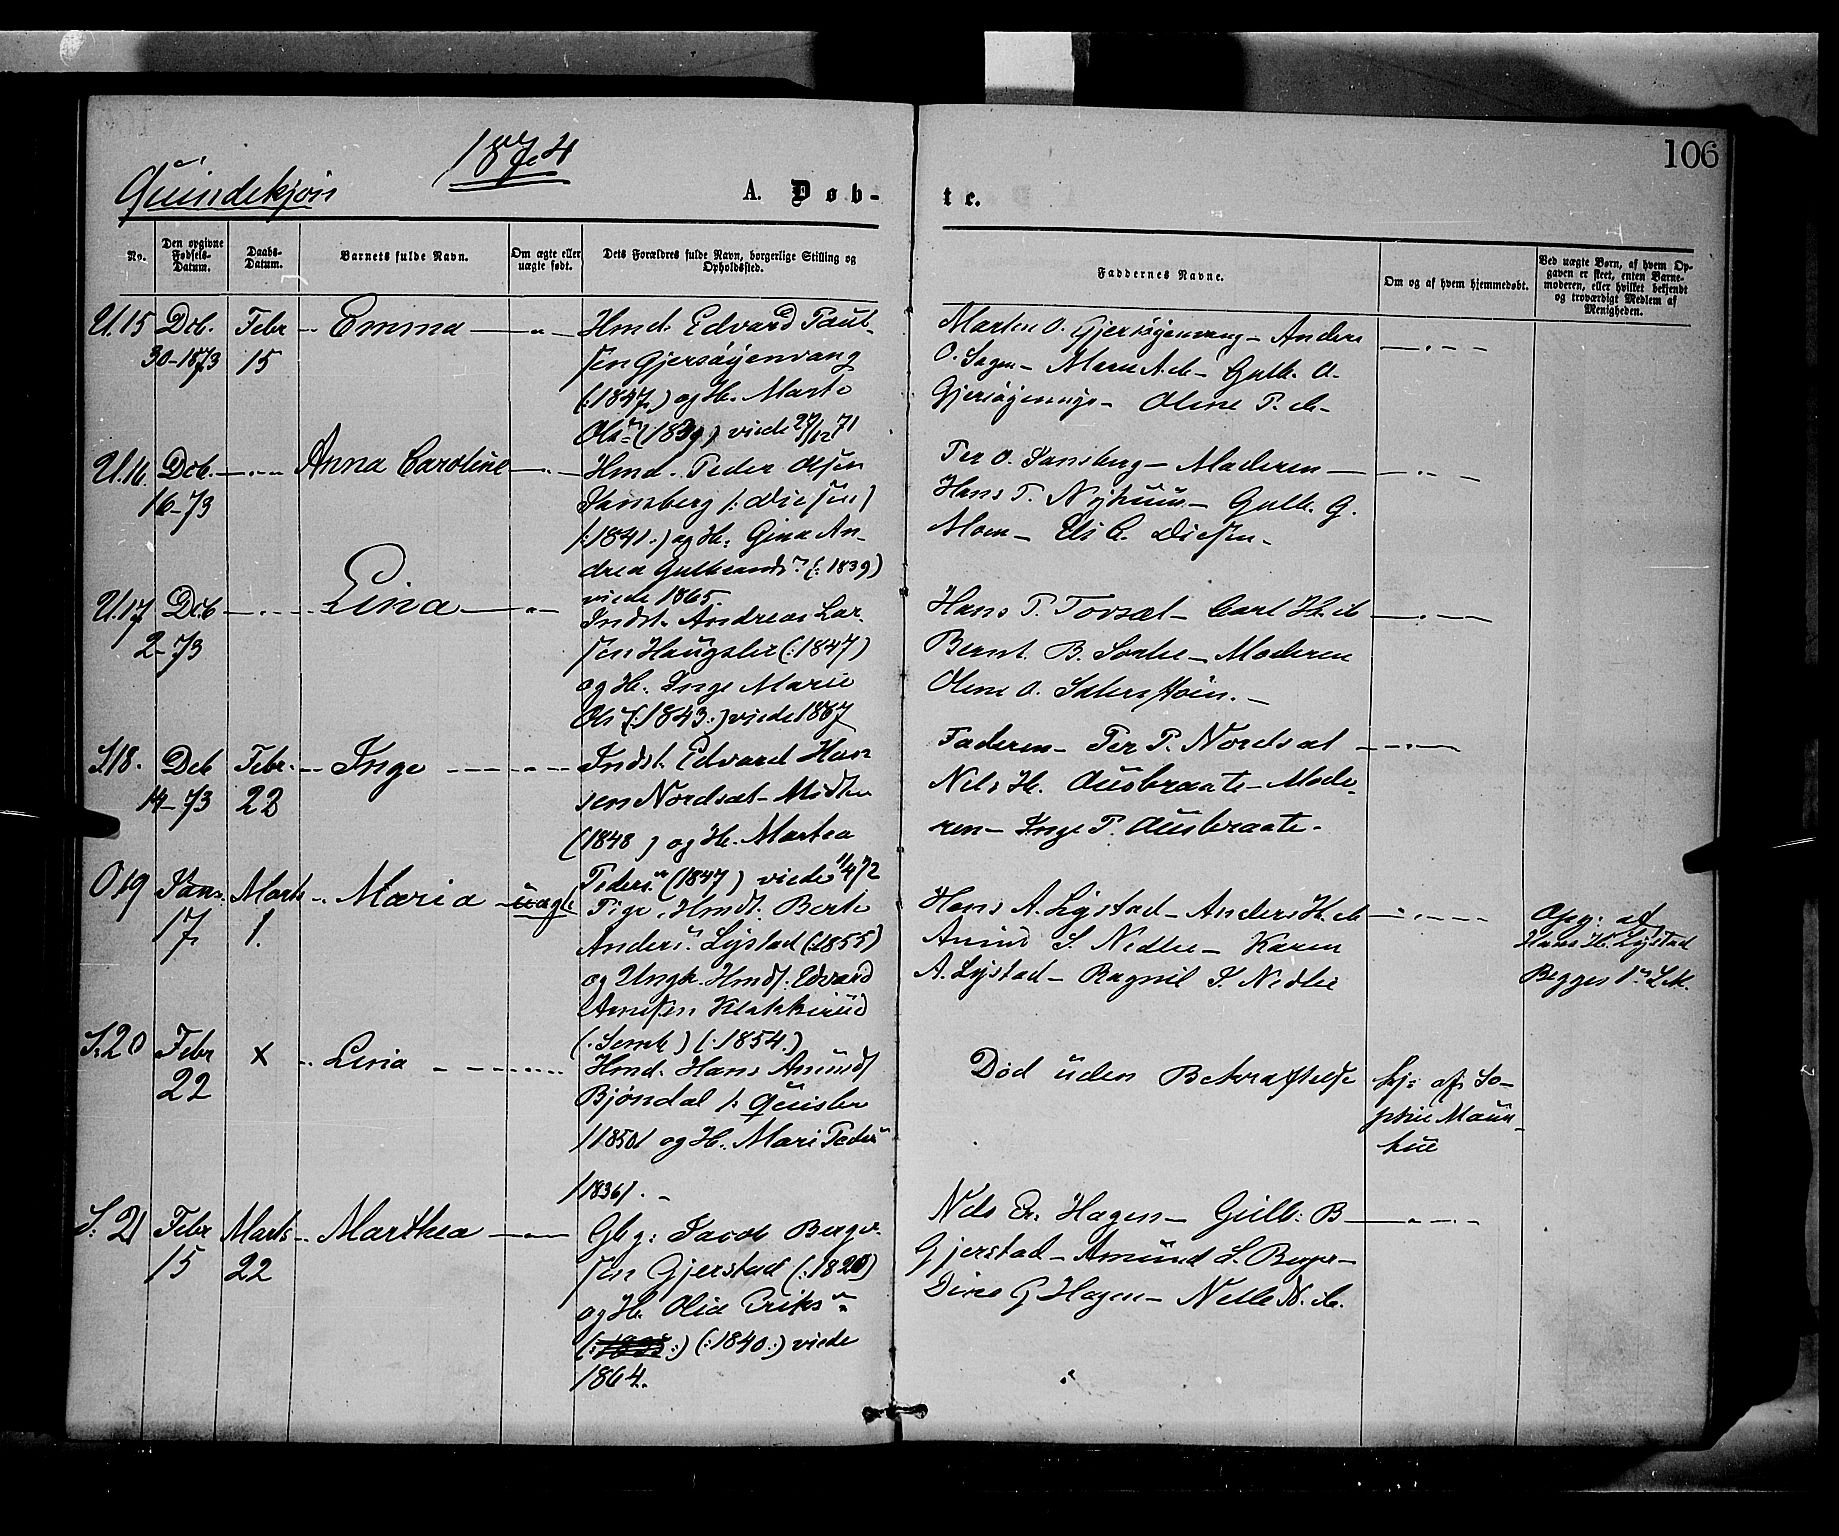 106
1874
Quindekjøn
A. Døb-
te.
No.
Den opgivne Fødsels-Datum.
Daabs-Datum.
Barnets fulde Navn.
Om ægte eller uægte født.
Dets Forældres fulde Navn, borgerlige Stilling og Opholdssted.
Faddernes Navne.
Om og af hvem hjemmedøbt.
Ved uægte Børn, af hvem Op-
gaven er skeet, enten Barne-
moderen, eller hvilket bekjendt
og troværdigt Medlem af
Menigheden.
U. 15 Deb. Febr " Emma — " — Hmd. Edvard Paul-
30-1873 15 sen Gjersøyenvang
(:1847:) og H. Marte
Ols (1839) viede 27/12 71
Marten O. Gjersøyenvang – Anders
O. Sagen – Maren A. d. – Gulb. O.
Gjersøyenvgs – Oline P. d. –
U. 16. Deb. — " — Anna Caroline — " — Hmd. Peder Olsen
16-73 Sansberg /: Diesen /
/:1841:) og H: Gina An-
drea Gulbrands (:1839)
viede 1865.
Per O. Sansberg – Moderen –
Hans P. Nyhuus – Gulb. G.
Moen – Els C. Diesen –
U. 17 Deb — " — Lina — " — Indst. Andreas Lar-
2-73 sen Haugslie (:1847)
og H. Inge Marie
Ols (:1843:) viede 1867
Hans P. Torsæt – Carl H. d.
Bernt B. Sorlie – Moderen
Oline O.
S 18. Deb Febr. " Inge — Indst. Edvard Han
14-73 22 sen Nordsæt – Midtli
(1848) og H. Martea
Peders (1847) viede 1/4 72
Faderen – Per P. Nordsæt
Nils H. Ausbraate – Mode-
ren – Inge P. Ausbraate –
O 19 Jan. Marts " Maria – uægte Pige, Hmdt. Berte
17 1. Anders Lystad (:1855)
og Ungk. Hmds. Edvard
Arnesen Klakkerud
(:Semb) (:1854:)
Hans A. Lystad – Anders H. d.
Amund S. Nedlie – Karen
A. Lystad – Ragnil S. Nedlie
Opg: af
Hans H. Lystad
Begges 1ste L.M.
S. 20 Febr x " Lina Hmd. Hans Amunds
22 Bjøndal /: Quislie
/1850/ og H. Mari Peders
/1836/. –
Død uden Bekræftelse
hj: af So-
phie Maun-
hue
S. 21 Febr Marts " Marthea — " — Gbg: Jacob Berger-
15 22 sen Gjerstad (:1820)
og H. Olea Eriks
(:) (:1840:) viede
1864.
Nels Er. Hagen – Gulb: B
Gjerstad – Amund L. Berger –
Dine G Hagen – Nelle N. d.